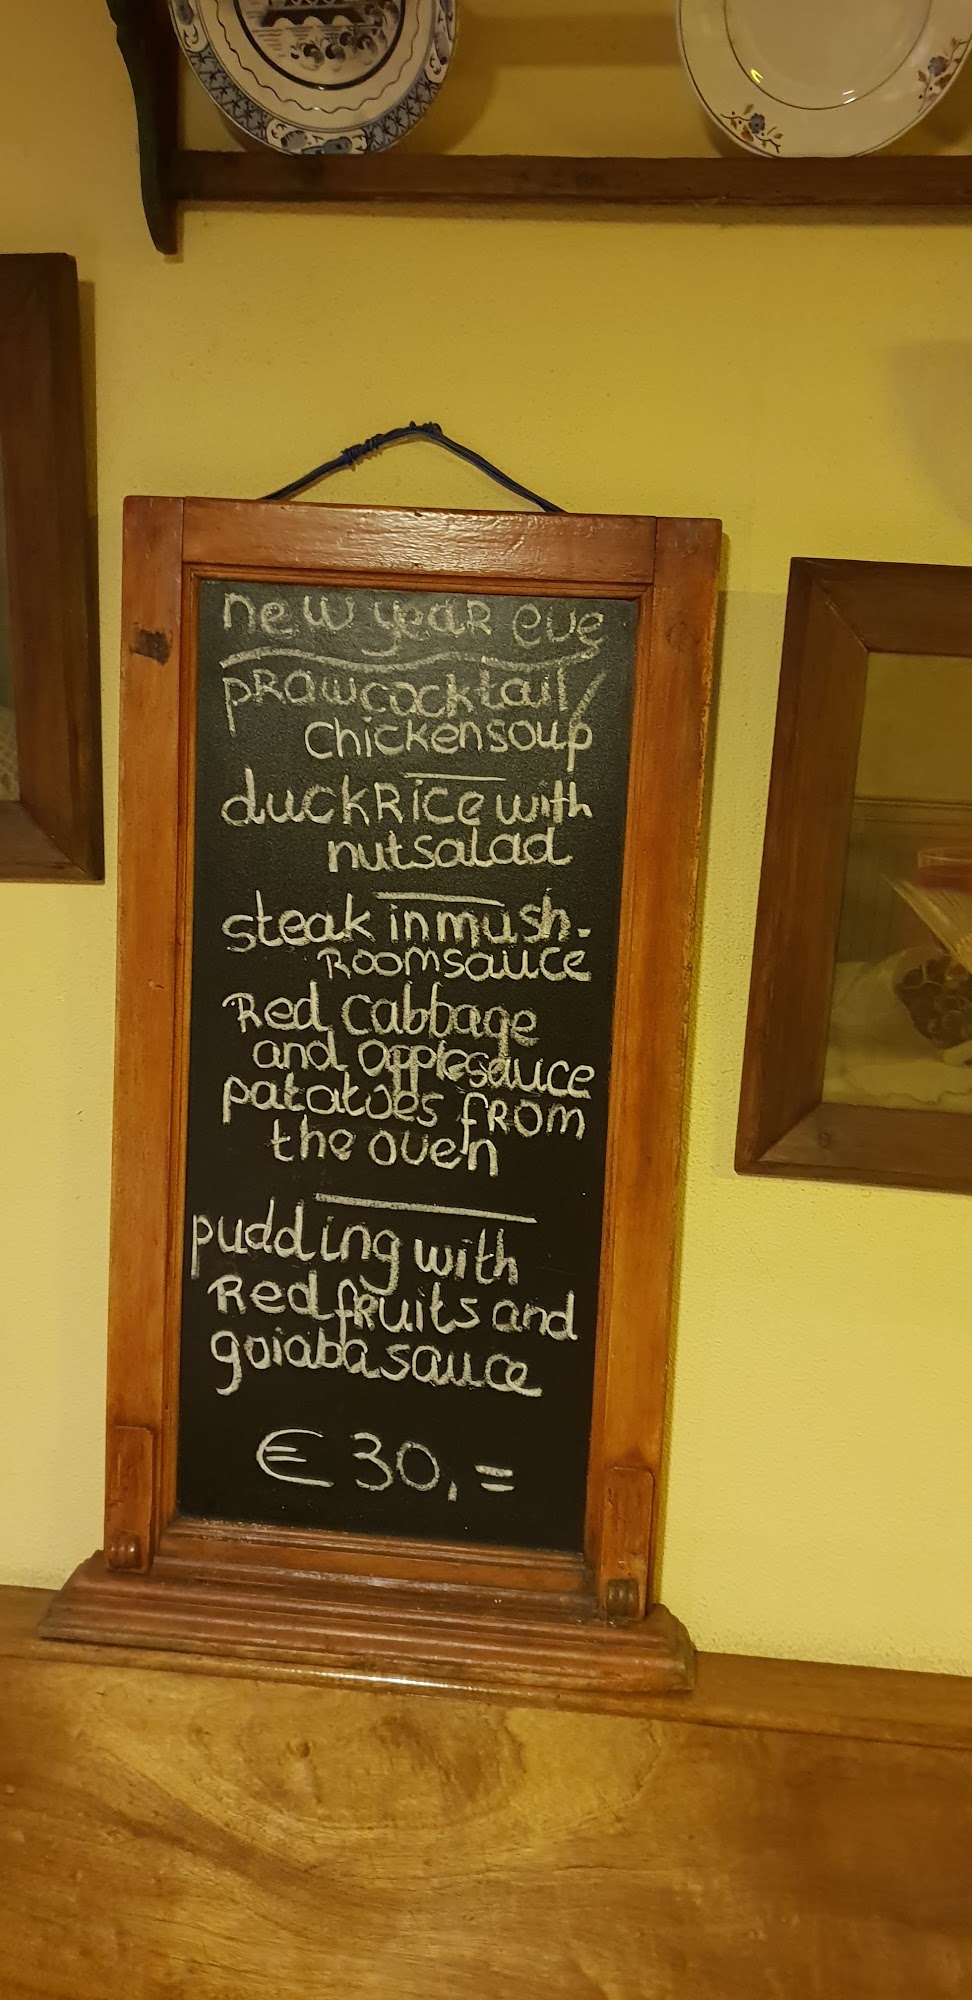 new year eve
prawcocktail/
chickensoup
duckRice with
nutsalad
steak in mush-
Roomsauce
Red cabbage
and applesauce
patatoes from
the oven
pudding with
Red fruits and
goiabasauce
€ 30,=